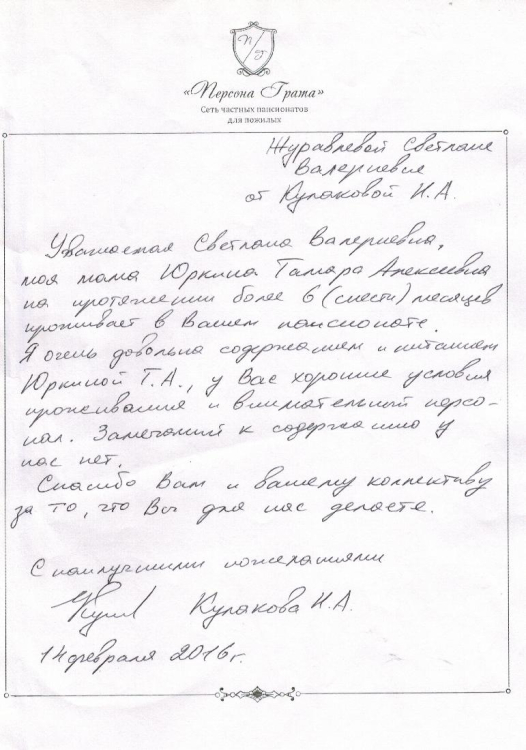 П/Г
«Персона Грата»
Сеть частных пансионатов
для пожилых
Журавлевой Светлане
Валериевне
от Кулаковой И.А.
Уважаемая Светлана Валериевна,
моя мама Юркина Тамара Алексеевна
на протяжении более 6 (шести) месяцев
проживает в Вашем пансионате.
Я очень довольна содержанием и питанием
Юркиной Т.А., у Вас хорошие условия
проживания и внимательный персо-
нал. Замечаний к содержанию у
нас нет.
Спасибо Вам и вашему коллективу
за то, что Вы для нас делаете.
С наилучшими пожеланиями
Кулакова И.А.
14 февраля 2016 г.